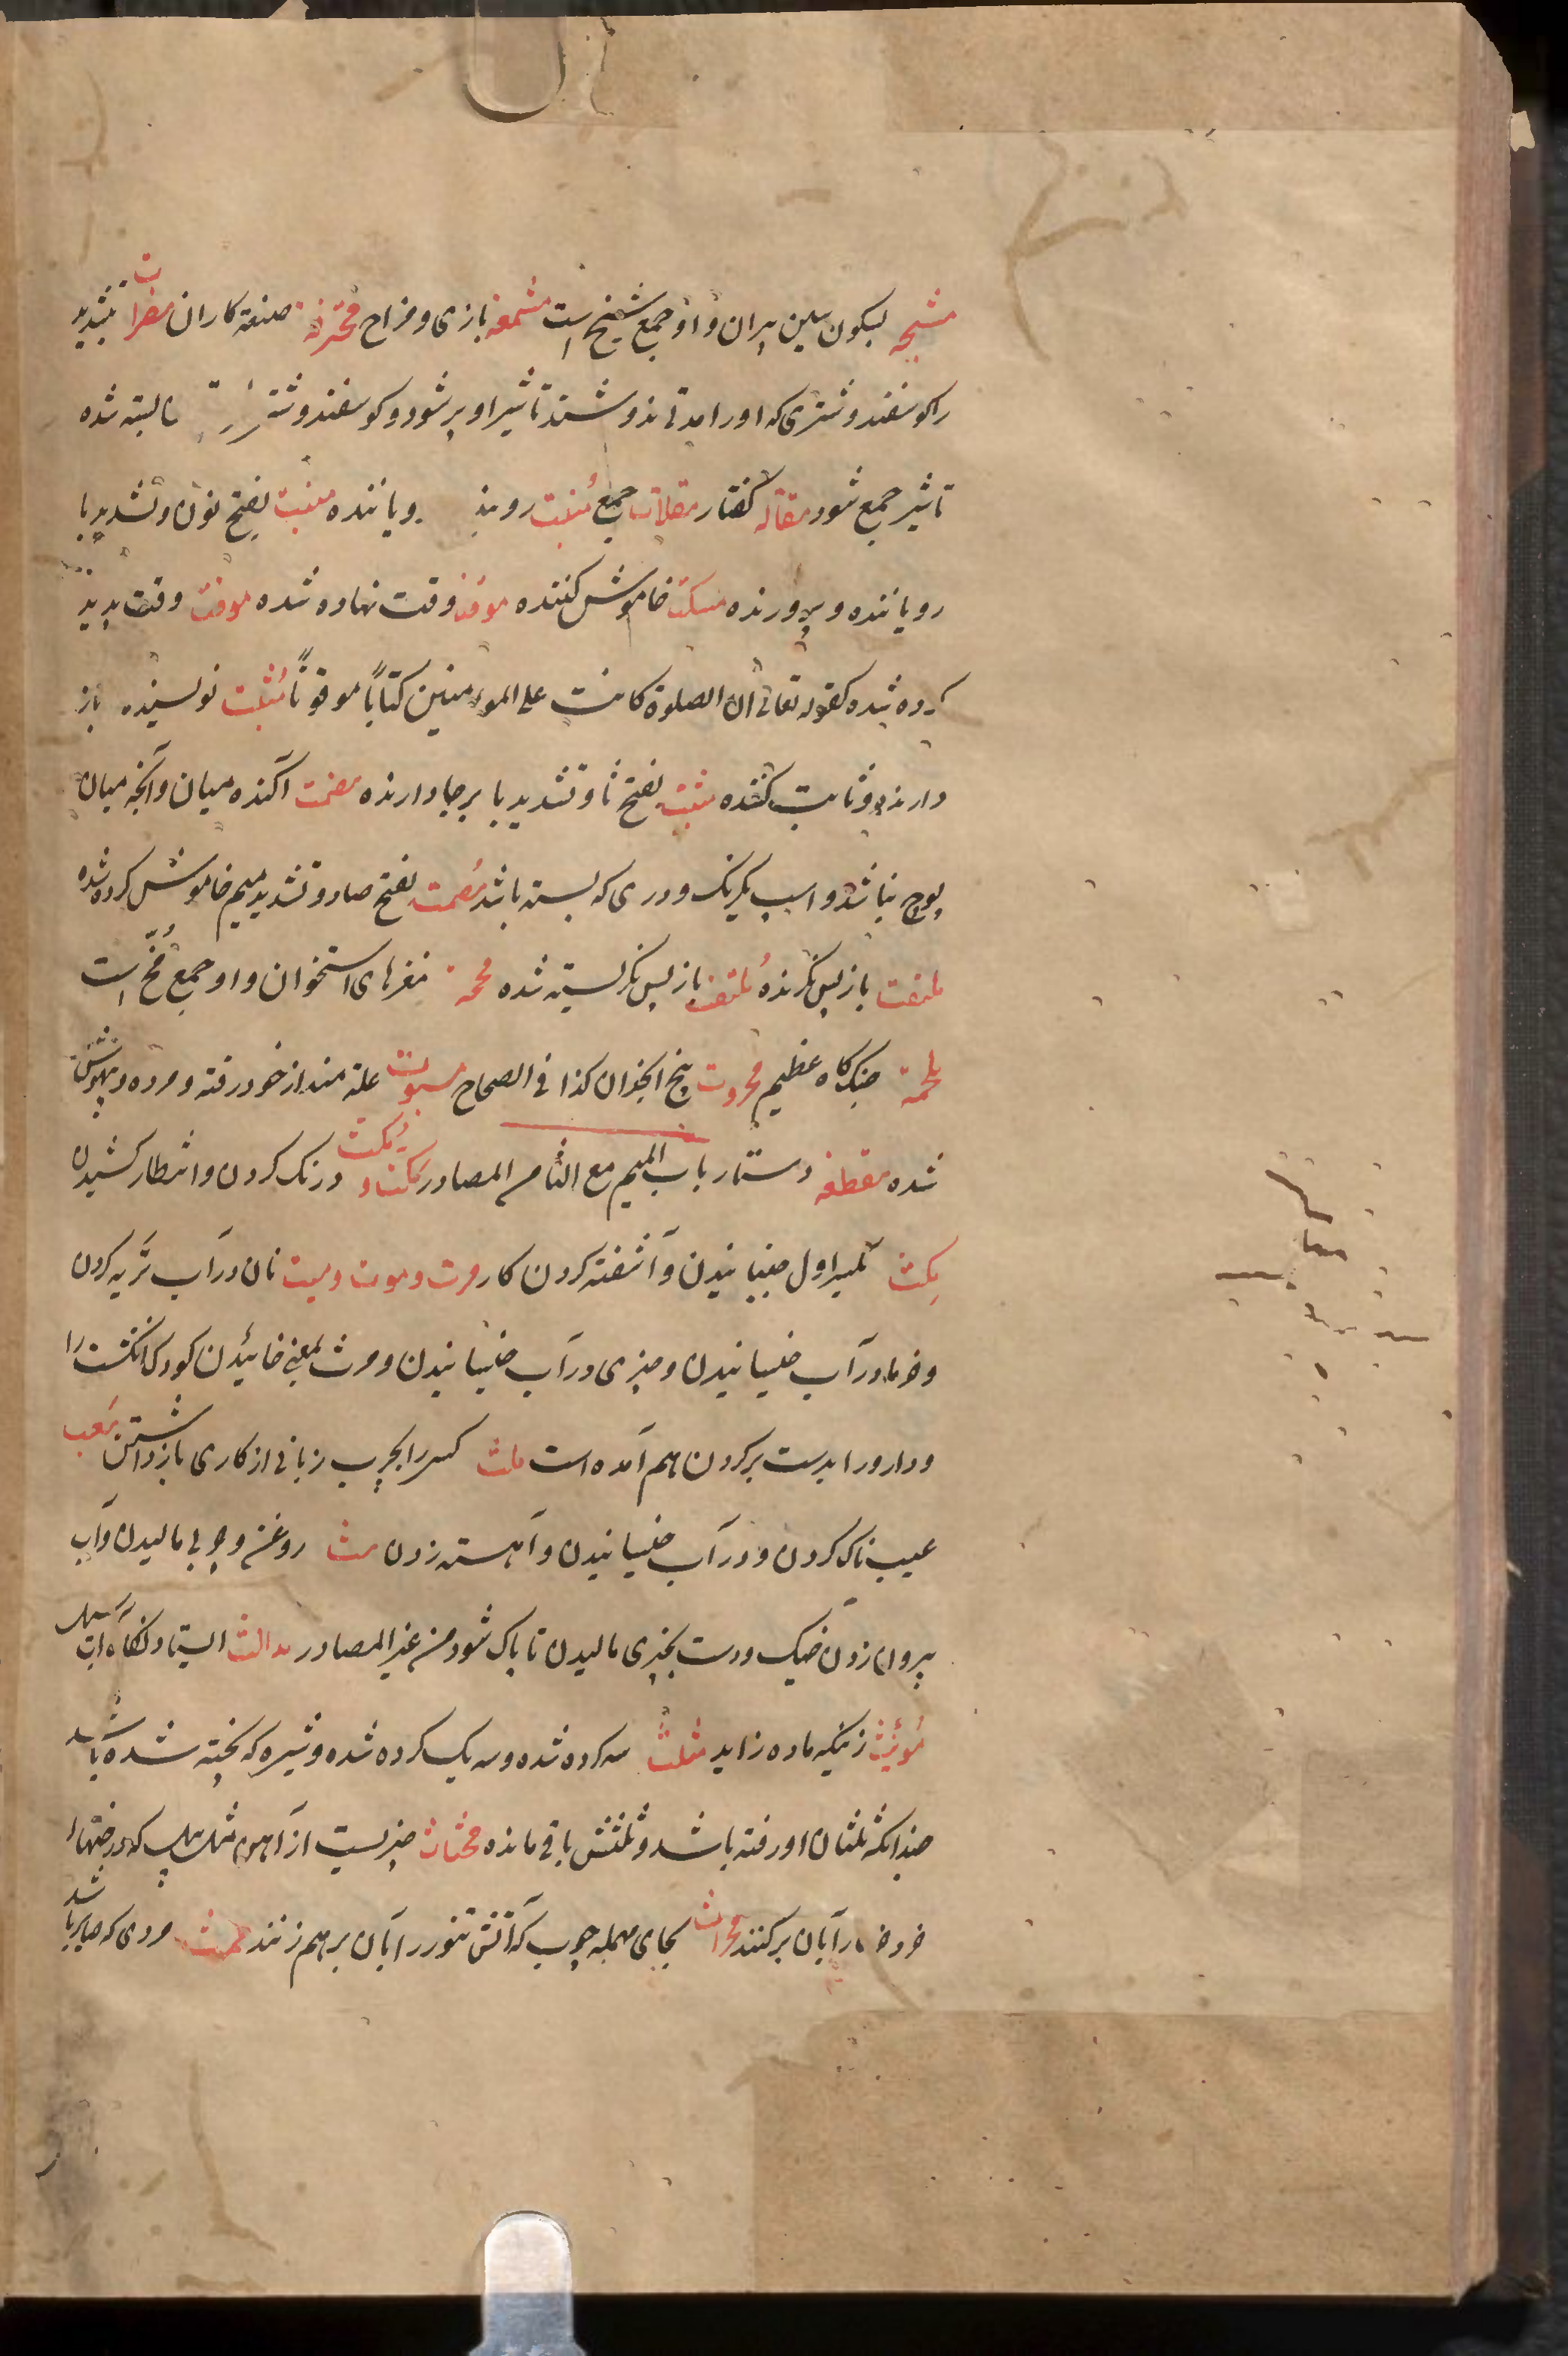 مشیخه بسکون سین پیران و او جمع شیخ است مشمعه بازی و مزاح محترفة صنعة کاران مصراة بتشدید
را کوسفند و شتری که او را مدتی ندوشند تا شیر او پر شود و کوسفند و شتر بسته شده
تا شیر جمع شود مقاله کفتار مقالات جمع مُنبت رویند ویاننده منبت بفتح نون و تشدید با
رویاننده و پرورنده مسکت خاموش کننده موقت وقت نهاده شده موقت وقت پدید
کرده شده کقوله تعالی ان الصلوة کانت علی المومنین کتاباً موقوتاً مُثبت نویسنده باز
دارنده و ثابت کننده مثبت بفتح ثا و تشدید با برجا دارنده مصمت آکنده میان و آنچه میان
پوچ نباشد و اسپ یکرنک و دری که بسته باشد مُصمت بفتح صاد و تشدید میم خاموش کرده شده
ملتفت باز پس نکرنده مُلتفت باز پس نکریسته شده مخخة مغزهای استخوان و او جمع مُخّ است
ملحمة جنک کاه عظیم محروت بیخ انجدان کذا فی الصحاح مسبوت علة مند از خود رفته و مرده و بیهوش
شده مقطعه دستار باب المیم مع الثا من المصادر مَکث و مُکث درنک کردن و انتظار کشیدن
مِکث بکسر اول جنبانیدن و آشفته کردن کار مرث و موث و میث نان در آب تَرید کردن
و خرما در آب خیسانیدن و چیزی در آب خیسانیدن و مرث بمعنی خائیدن کودک انکشت را
و دارو را بدست بر کردن هم آمده است ملث کسی را بچرب زبانی از کاری باز داشتن مَغث
عیب ناک کردن و در آب خیسانیدن و آهسته زدن مث روغن و چربی مالیدن و آب
بیرون زدن خیک و دست بچیزی مالیدن تا پاک شود من غیر المصادر
مُونث زنیکه ماده زاید مثلث سه کرده شده و سه یک کرده شده و شیره که پخته شده باشد
چندانکه ثلثان او رفته باشد و ثلثش باقی مانده محثاث چیزیست از آهن مثل بیل که درختها
خرد خرد را بآن برکنند محراث بحای مهمله چوب که آتش تنور را بآن بر هم زنند مردی که باشد